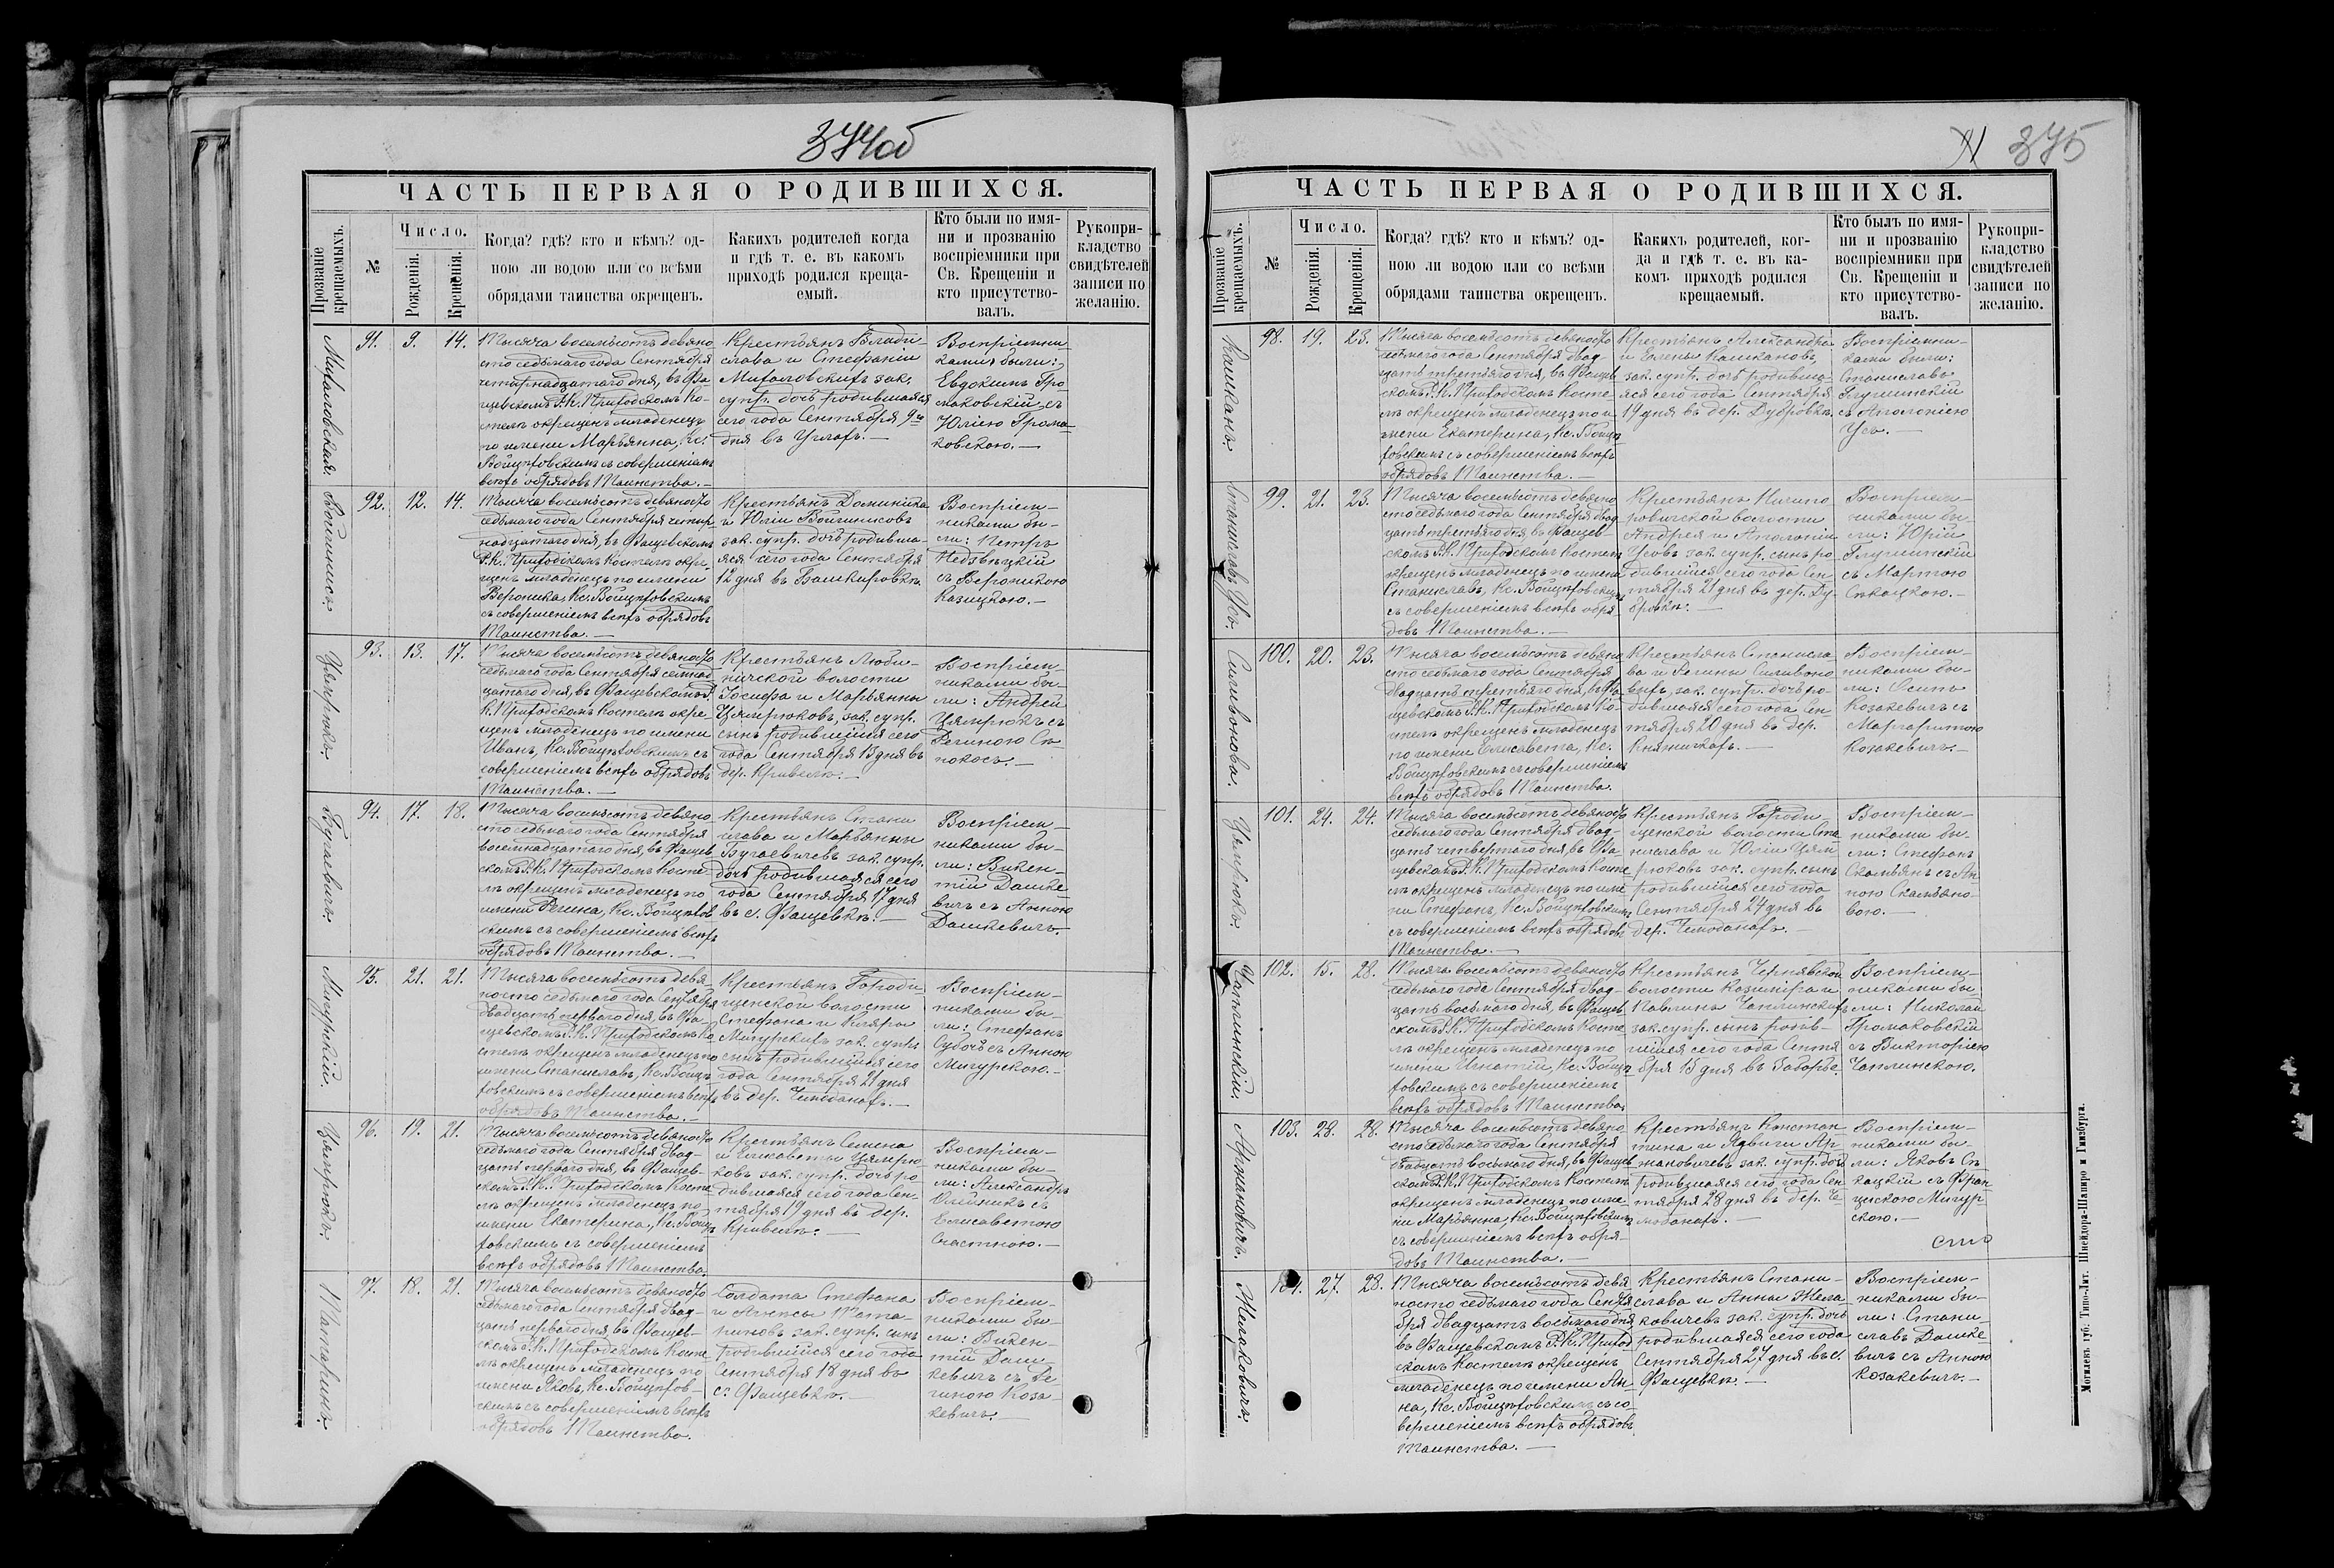 374об
ЧАСТЬ ПЕРВАЯ О РОДИВШИХСЯ.
Прозваніе крещаемыхъ.
№
Число.
Рожденія.
Крещенія.
Когда? гдѣ? кто и кѣмъ? од-
ною ли водою или со всѣми
обрядами таинства окрещенъ.
Какихъ родителей когда
и гдѣ т. е. въ какомъ
приходѣ родился креща-
емый.
Кто были по имя-
ни и прозванію
воспріемники при
Св. Крещеніи и
кто присутство-
валъ.
Рукопри-
кладство
свидѣтелей
записи по
желанію.
Михаловская.
91. 9. 14.
Тысяча восемьсотъ девяно-
сто седьмаго года Сентября
четырнадцатаго дня, въ Фа-
щевскомъ Р.К. Приходскомъ Ко-
стелѣ окрещенъ младенецъ
по имени Марьянна, Кс.
Войцѣховскимъ съ совершеніемъ
всѣхъ обрядовъ Таинства. —
Крестьянъ Влади-
слава и Стефаніи
Михаловскихъ зак.
супр. дочь родившаяся
сего года Сентября 9го
дня въ Углахъ. —
Воспріемни-
ками были:
Евдокимъ Гро-
маковскій съ
Юліею Грома-
ковскою. —
Войшнисъ.
92. 12. 14.
Тысяча восемьсотъ девяносто
седьмаго года Сентября четыр-
надцатаго дня, въ Фащевскомъ
Р.К. Приходскомъ Костелѣ окре-
щенъ младенецъ по имени
Вероника, Кс. Войцѣховскимъ
съ совершеніемъ всѣхъ обрядовъ
Таинства. —
Крестьянъ Доминика
и Юліи Войшнисовъ
зак. супр. дочь родивша-
яся сего года Сентября
12 дня въ Башкировкѣ.
Воспріем-
никами бы-
ли: Петръ
Недзвѣцкій
съ Вероникою
Казицкою. —
Цямрюкъ.
93. 13. 17.
Тысяча восемьсотъ девяносто
седьмаго года Сентября семнад-
цатаго дня, въ Фащевскомъ Р.
К. Приходскомъ Костелѣ окре-
щенъ младенецъ по имени
Иванъ, Кс. Войцѣховскимъ съ
совершеніемъ всѣхъ обрядовъ
Таинства. —
Крестьянъ Люби-
ничской волости
Іосифа и Марьянны
Цямрюковъ, зак. супр.
сынъ родившійся сего
года Сентября 13 дня въ
дер. Кривелѣ. —
Воспріем-
никами бы-
ли: Андрей
Цямрюкъ съ
Региною Сѣ-
покосъ. —
Бугаевичъ.
94. 17. 18.
Тысяча восемьсотъ девяно-
сто седьмаго года Сентября
восемнадцатаго дня, въ Фащев-
скомъ Р.К. Приходскомъ Косте-
лѣ окрещенъ младенецъ по
имени Регина, Кс. Войцѣхов-
скимъ съ совершеніемъ всѣхъ
обрядовъ Таинства. —
Крестьянъ Стани-
слава и Марьянны
Бугаевичевъ зак. супр.
дочь родившаяся сего
года Сентября 17 дня
въ с. Фащевкѣ. —
Воспріем-
никами бы-
ли: Викен-
тій Дашке-
вичъ съ Анною
Дашкевичъ.
Мигурскій.
95. 21. 21.
Тысяча восемьсотъ девя-
носто седьмаго года Сентября
двадцать перваго дня, въ Фа-
щевскомъ Р.К. Приходскомъ Ко-
стелѣ окрещенъ младенецъ по
имени Станиславъ, Кс. Войцѣ-
ховскимъ съ совершеніемъ всѣхъ
обрядовъ Таинства. —
Крестьянъ Городи-
щенской волости
Стефана и Кляры
Мигурскихъ зак. супр.
сынъ родившійся сего
года Сентября 21 дня
въ дер. Чемоданахъ. —
Воспріем-
никами бы-
ли: Стефанъ
Субочъ съ Анною
Мигурскою. —
Цямрюкъ.
96. 19. 21.
Тысяча восемьсотъ девяносто
седьмаго года Сентября двад-
цать перваго дня, въ Фащев-
скомъ Р.К. Приходскомъ Косте-
лѣ окрещенъ младенецъ по
имени Екатерина, Кс. Войцѣ-
ховскимъ съ совершеніемъ
всѣхъ обрядовъ Таинства.
Крестьянъ Семена
и Елисаветы Цямрю-
ковъ зак. супр. дочь ро-
дившаяся сего года Сен-
тября 19 дня въ дер.
Кривелѣ. —
Воспріем-
никами бы-
ли: Александръ
Олейникъ съ
Елисаветою
Счастною. —
Татаринъ.
97. 18. 21.
Тысяча восемьсотъ девяносто
седьмаго года Сентября двад-
цать перваго дня, въ Фащев-
скомъ Р.К. Приходскомъ Косте-
лѣ окрещенъ младенецъ по
имени Яковъ, Кс. Войцѣхов-
скимъ съ совершеніемъ всѣхъ
обрядовъ Таинства.
Солдата Стефана
и Агнесы Тата-
риновъ зак. супр. сынъ
родившійся сего года
Сентября 18 дня въ
с. Фащевкѣ. —
Воспріем-
никами бы-
ли: Викен-
тій Даш-
кевичъ съ Ре-
гиною Коза-
кевичъ. —
375
ЧАСТЬ ПЕРВАЯ О РОДИВШИХСЯ.
Прозваніе крещаемыхъ.
№
Число.
Рожденія.
Крещенія.
Когда? гдѣ? кто и кѣмъ? од-
ною ли водою или со всѣми
обрядами таинства окрещенъ.
Какихъ родителей, ког-
да и гдѣ т. е. въ ка-
комъ приходѣ родился
крещаемый.
Кто былъ по имя-
ни и прозванію
воспріемники при
Св. Крещеніи и
кто присутство-
валъ.
Рукопри-
кладство
свидѣтелей
записи по
желанію.
Кашканъ.
98. 19. 23.
Тысяча восемьсотъ девяносто
седьмаго года Сентября двад-
цать третьяго дня, въ Фащев-
скомъ Р.К. Приходскомъ Косте-
лѣ окрещенъ младенецъ по и-
мени Екатерина, Кс. Войцѣ-
ховскимъ съ совершеніемъ всѣхъ
обрядовъ Таинства. —
Крестьянъ Александра
и Елены Кашкановъ,
зак. супр. дочь родивша-
яся сего года Сентября
19 дня въ дер. Дубровкѣ.
Воспріемни-
ками были:
Станиславъ
Глушинскій
съ Аполоніею
Усъ. —
Станиславъ Усъ.
99. 21. 23.
Тысяча восемьсотъ девяно-
сто седьмаго года Сентября двад-
цать третьяго дня, въ Фащев-
скомъ Р.К. Приходскомъ Костелѣ
окрещенъ младенецъ по имени
Станиславъ, Кс. Войцѣховскимъ
съ совершеніемъ всѣхъ обря-
довъ Таинства. —
Крестьянъ
ровичской волости
Андрея и Аполоніи
Усовъ зак. супр. сынъ ро-
дившійся сего года Сен-
тября 21 дня въ дер. Ду-
бровкѣ. —
Воспріем-
никами бы-
ли: Юрій
Глушинскій
съ Мартою
Сѣкацкою. —
Силивонова.
100. 20. 23.
Тысяча восемьсотъ девяно-
сто седьмаго года Сентября
двадцать третьяго дня, въ Фа-
щевскомъ Р.К. Приходскомъ Ко-
стелѣ окрещенъ младенецъ
по имени Елисавета, Кс.
Войцѣховскимъ съ совершеніемъ
всѣхъ обрядовъ Таинства.
Крестьянъ Станисла-
ва и Регины Силивоно-
выхъ, зак. супр. дочь ро-
дившаяся сего года Сен-
тября 20 дня въ дер.
Княжичахъ. —
Воспріем-
никами бы-
ли: Осипъ
Козакевичъ съ
Маргаритою
Козакевичъ. —
Цямрюкъ.
101. 24. 24.
Тысяча восемьсотъ девяносто
седьмаго года Сентября двад-
цать четвертаго дня, въ Фа-
щевскомъ Р.К. Приходскомъ Косте-
лѣ окрещенъ младенецъ по име-
ни Стефанъ, Кс. Войцѣховскимъ
съ совершеніемъ всѣхъ обрядовъ
Таинства. —
Крестьянъ Городи-
щенской волости Ста-
нислава и Юліи Цям-
рюковъ зак. супр. сынъ
родившійся сего года
Сентября 24 дня въ
дер. Чемоданахъ. —
Воспріем-
никами бы-
ли: Стефанъ
Скальянъ съ Ан-
ною Скальяно-
вою. —
Чаплинскій.
102. 15. 28.
Тысяча восемьсотъ девяносто
седьмаго года Сентября двад-
цать восьмаго дня, въ Фащев-
скомъ Р.К. Приходскомъ Косте-
лѣ окрещенъ младенецъ по
имени Игнатій, Кс. Войцѣ-
ховскимъ съ совершеніемъ
всѣхъ обрядовъ Таинства.
Крестьянъ Чернявской
волости Казиміра и
Павлины Чаплинскихъ
зак. супр. сынъ родив-
шійся сего года Сентя-
бря 15 дня въ Заборье.
Воспріем-
никами бы-
ли: Николай
Громаковскій
съ Викторіею
Чаплинскою.
Артановичъ.
103. 28. 28.
Тысяча восемьсотъ девяно-
сто седьмаго года Сентября
двадцать восьмаго дня, въ Фащев-
скомъ Р.К. Приходскомъ Костелѣ
окрещенъ младенецъ по име-
ни Марьянна, Кс. Войцѣховскимъ
съ совершеніемъ всѣхъ обря-
довъ Таинства. —
Крестьянъ Констан-
тина и Ядвиги Ар-
тановичевъ зак. супр. дочь
родившаяся сего года Сен-
тября 28 дня въ дер. Че-
моданахъ. —
Воспріем-
никами бы-
ли: Яковъ Сѣ-
кацкій съ Фран-
цискою Мигур-
скою. —
Желаковичъ.
104. 27. 28.
Тысяча восемьсотъ девя-
носто седьмаго года Сентя-
бря двадцать восьмаго дня,
въ Фащевскомъ Р.К. Приход-
скомъ Костелѣ окрещенъ
младенецъ по имени Ан-
на, Кс. Войцѣховскимъ съ со-
вершеніемъ всѣхъ обрядовъ
Таинства. —
Крестьянъ Стани-
слава и Анны Жела-
ковичевъ зак. супр. дочь
родившаяся сего года
Сентября 27 дня въ с.
Фащевкѣ. —
Воспріем-
никами бы-
ли: Стани-
славъ Дашке-
вичъ съ Анною
Козакевичъ. —
Могилевъ губ. Типо-Лит. Шнейдора-Шапиро и Гинзбурга.